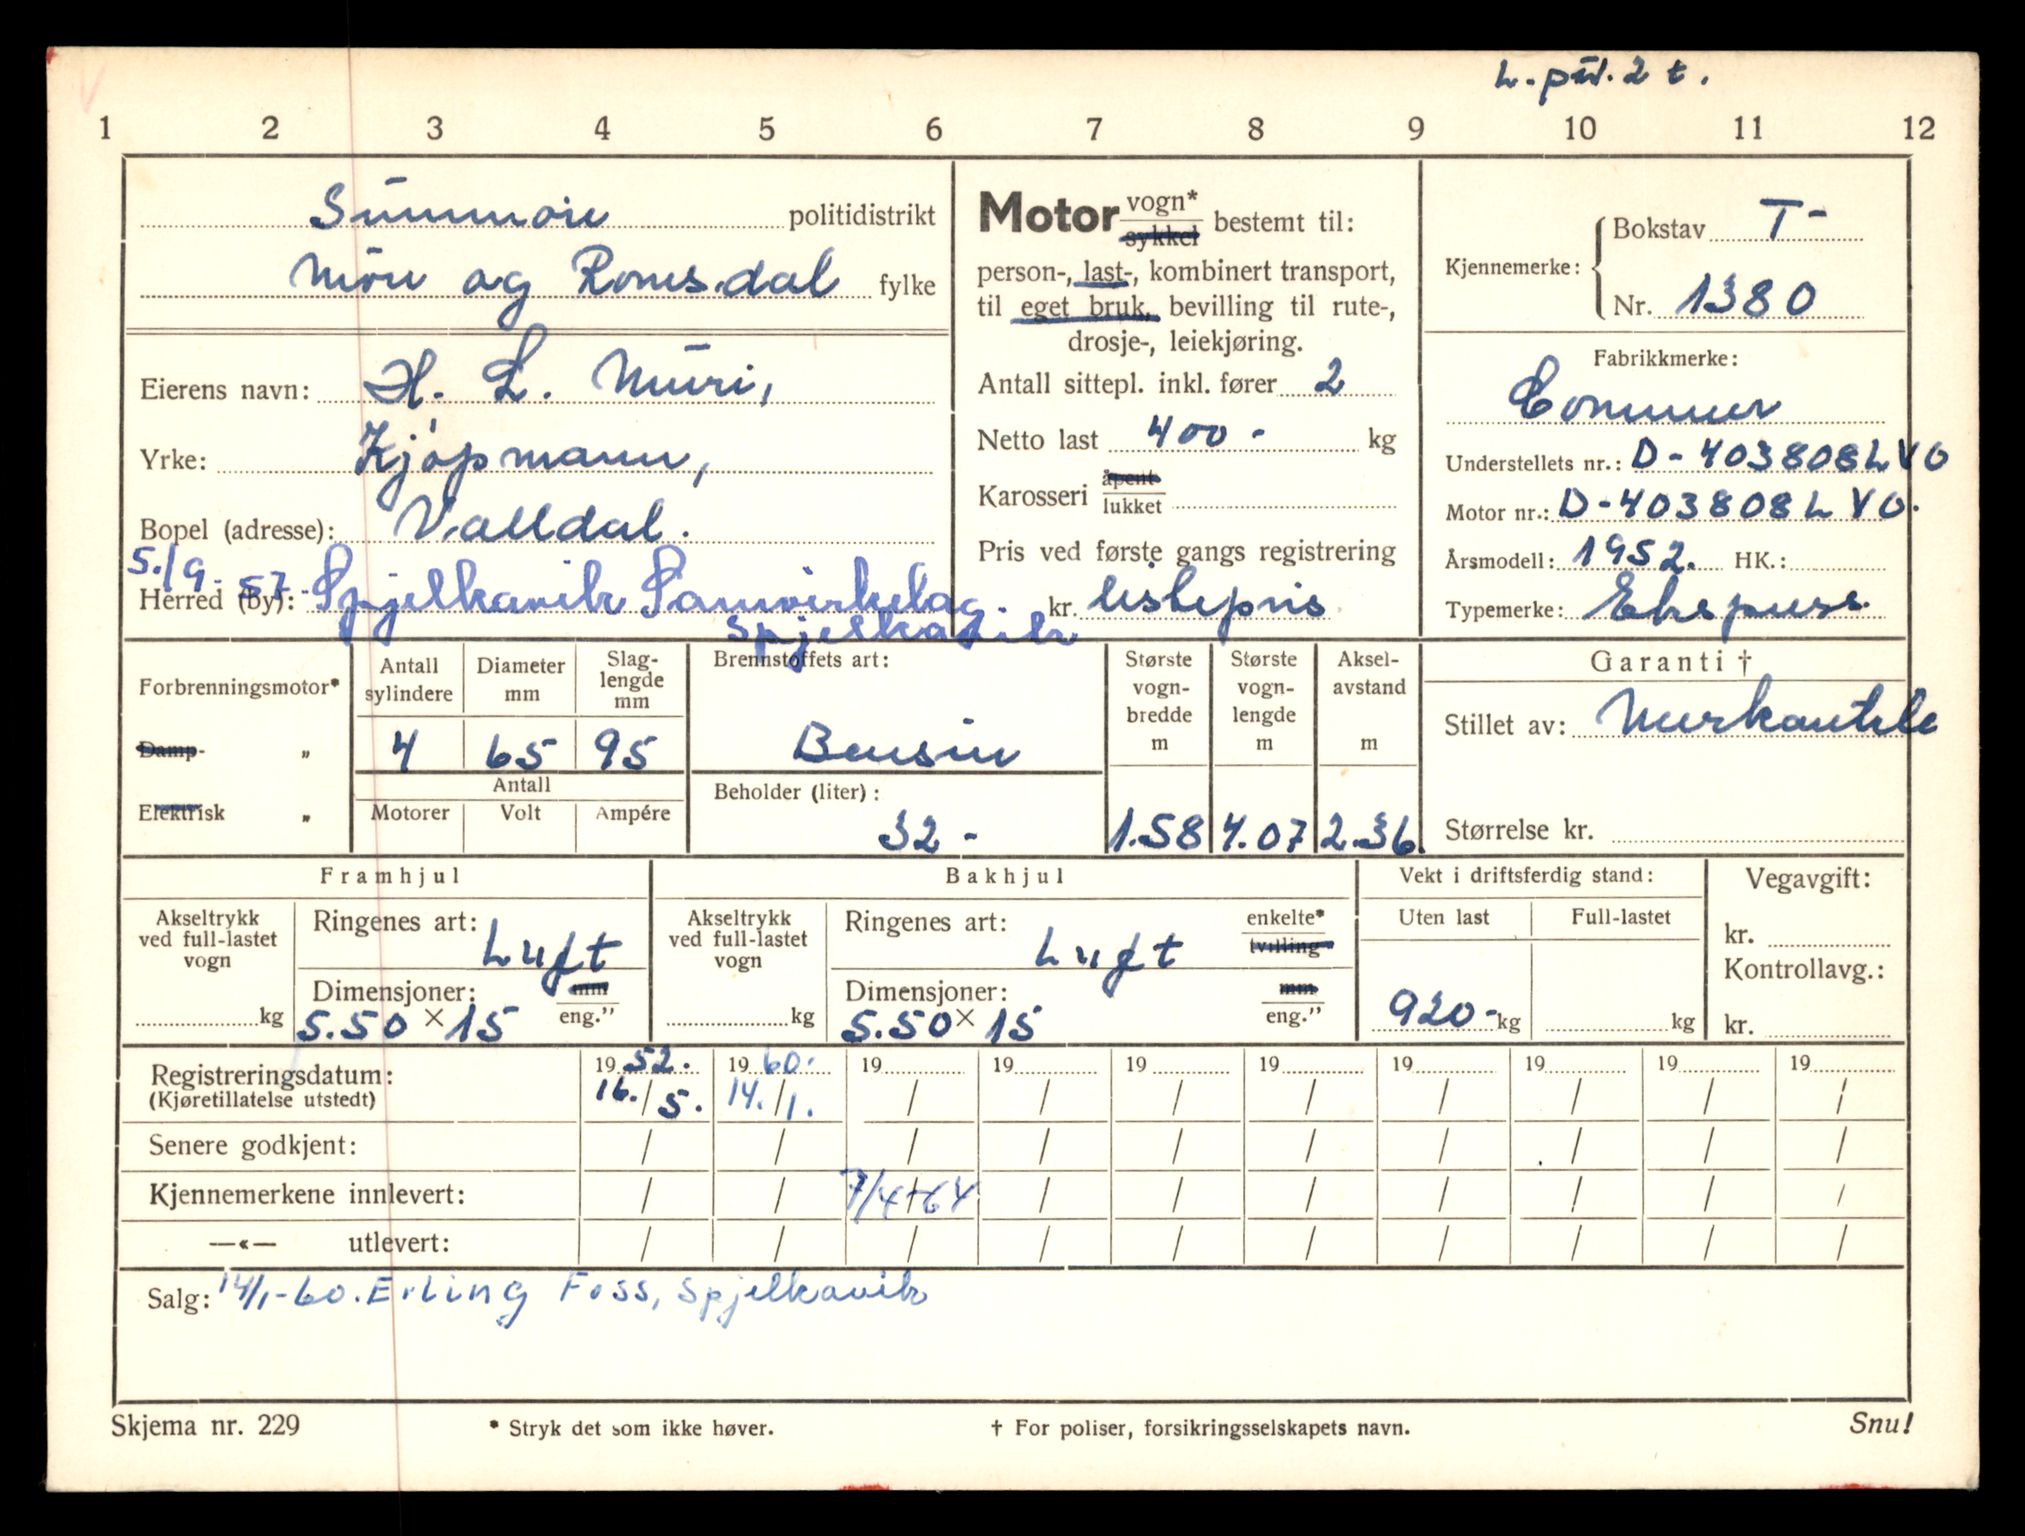 L. p.d. 2 t.
1 2 3 4 5 6 7 8 9 10 11 12
Sunnmøre politidistrikt
Møre og Romsdal fylke
Eierens navn: H. L. Muri,
Yrke: Kjøpmann,
Bopel (adresse): Valldal.
5./9. 57. Spjelkavik Samvirkelag.
Herred (by):
Spjelkavik
Motor vogn*
sykkel bestemt til:
person-, last-, kombinert transport,
til eget bruk, bevilling til rute-,
drosje-, leiekjøring.
Antall sittepl. inkl. fører 2
Netto last 400 - kg
Karosseri åpent
lukket
Pris ved første gangs registrering
kr. listepris
Kjennemerke: Bokstav T-
Nr. 1380
Fabrikkmerke:
Commer
Understellets nr.: D-403808LVO
Motor nr.: D-403808LVO.
Årsmodell: 1952. HK.:
Typemerke: Ekspress.
Forbrenningsmotor*
Damp- „
Elektrisk „
Antall sylindere Diameter mm Slag-lengde mm
4 65 95
Antall
Motorer Volt Ampére
Brennstoffets art:
Bensin
Beholder (liter):
32 -
Største vogn-bredde m Største vogn-lengde m Aksel-avstand m
1.58 4.07 2.36.
Garanti †
Stillet av: Merkantile
Størrelse kr.
Framhjul
Akseltrykk ved full-lastet vogn
kg
Ringenes art:
Luft
Dimensjoner: mm
5.50 × 15 eng."
Bakhjul
Akseltrykk ved full-lastet vogn
kg
Ringenes art: enkelte*
Luft tvilling-
Dimensjoner: mm
5.50 × 15 eng."
Vekt i driftsferdig stand:
Uten last Full-lastet
920- kg kg
Vegavgift:
kr.
Kontrollavg.:
kr.
Registreringsdatum: 19 52. 19 60. 19 19 19 19 19 19 19 19
(Kjøretillatelse utstedt) 16./5. 14./1. / / / / / / / /
Senere godkjent: / / / / / / / / / /
Kjennemerkene innlevert: / / 7/4-64 / / / / / / /
—«— utlevert: / / / / / / / / / /
Salg: 14/1-60. Erling Foss, Spjelkavik
Skjema nr. 229 * Stryk det som ikke høver. † For poliser, forsikringsselskapets navn. Snu!